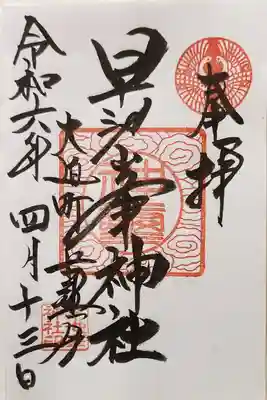 奉拝
早池峯神社
大迫町
令和六年 四月十三日